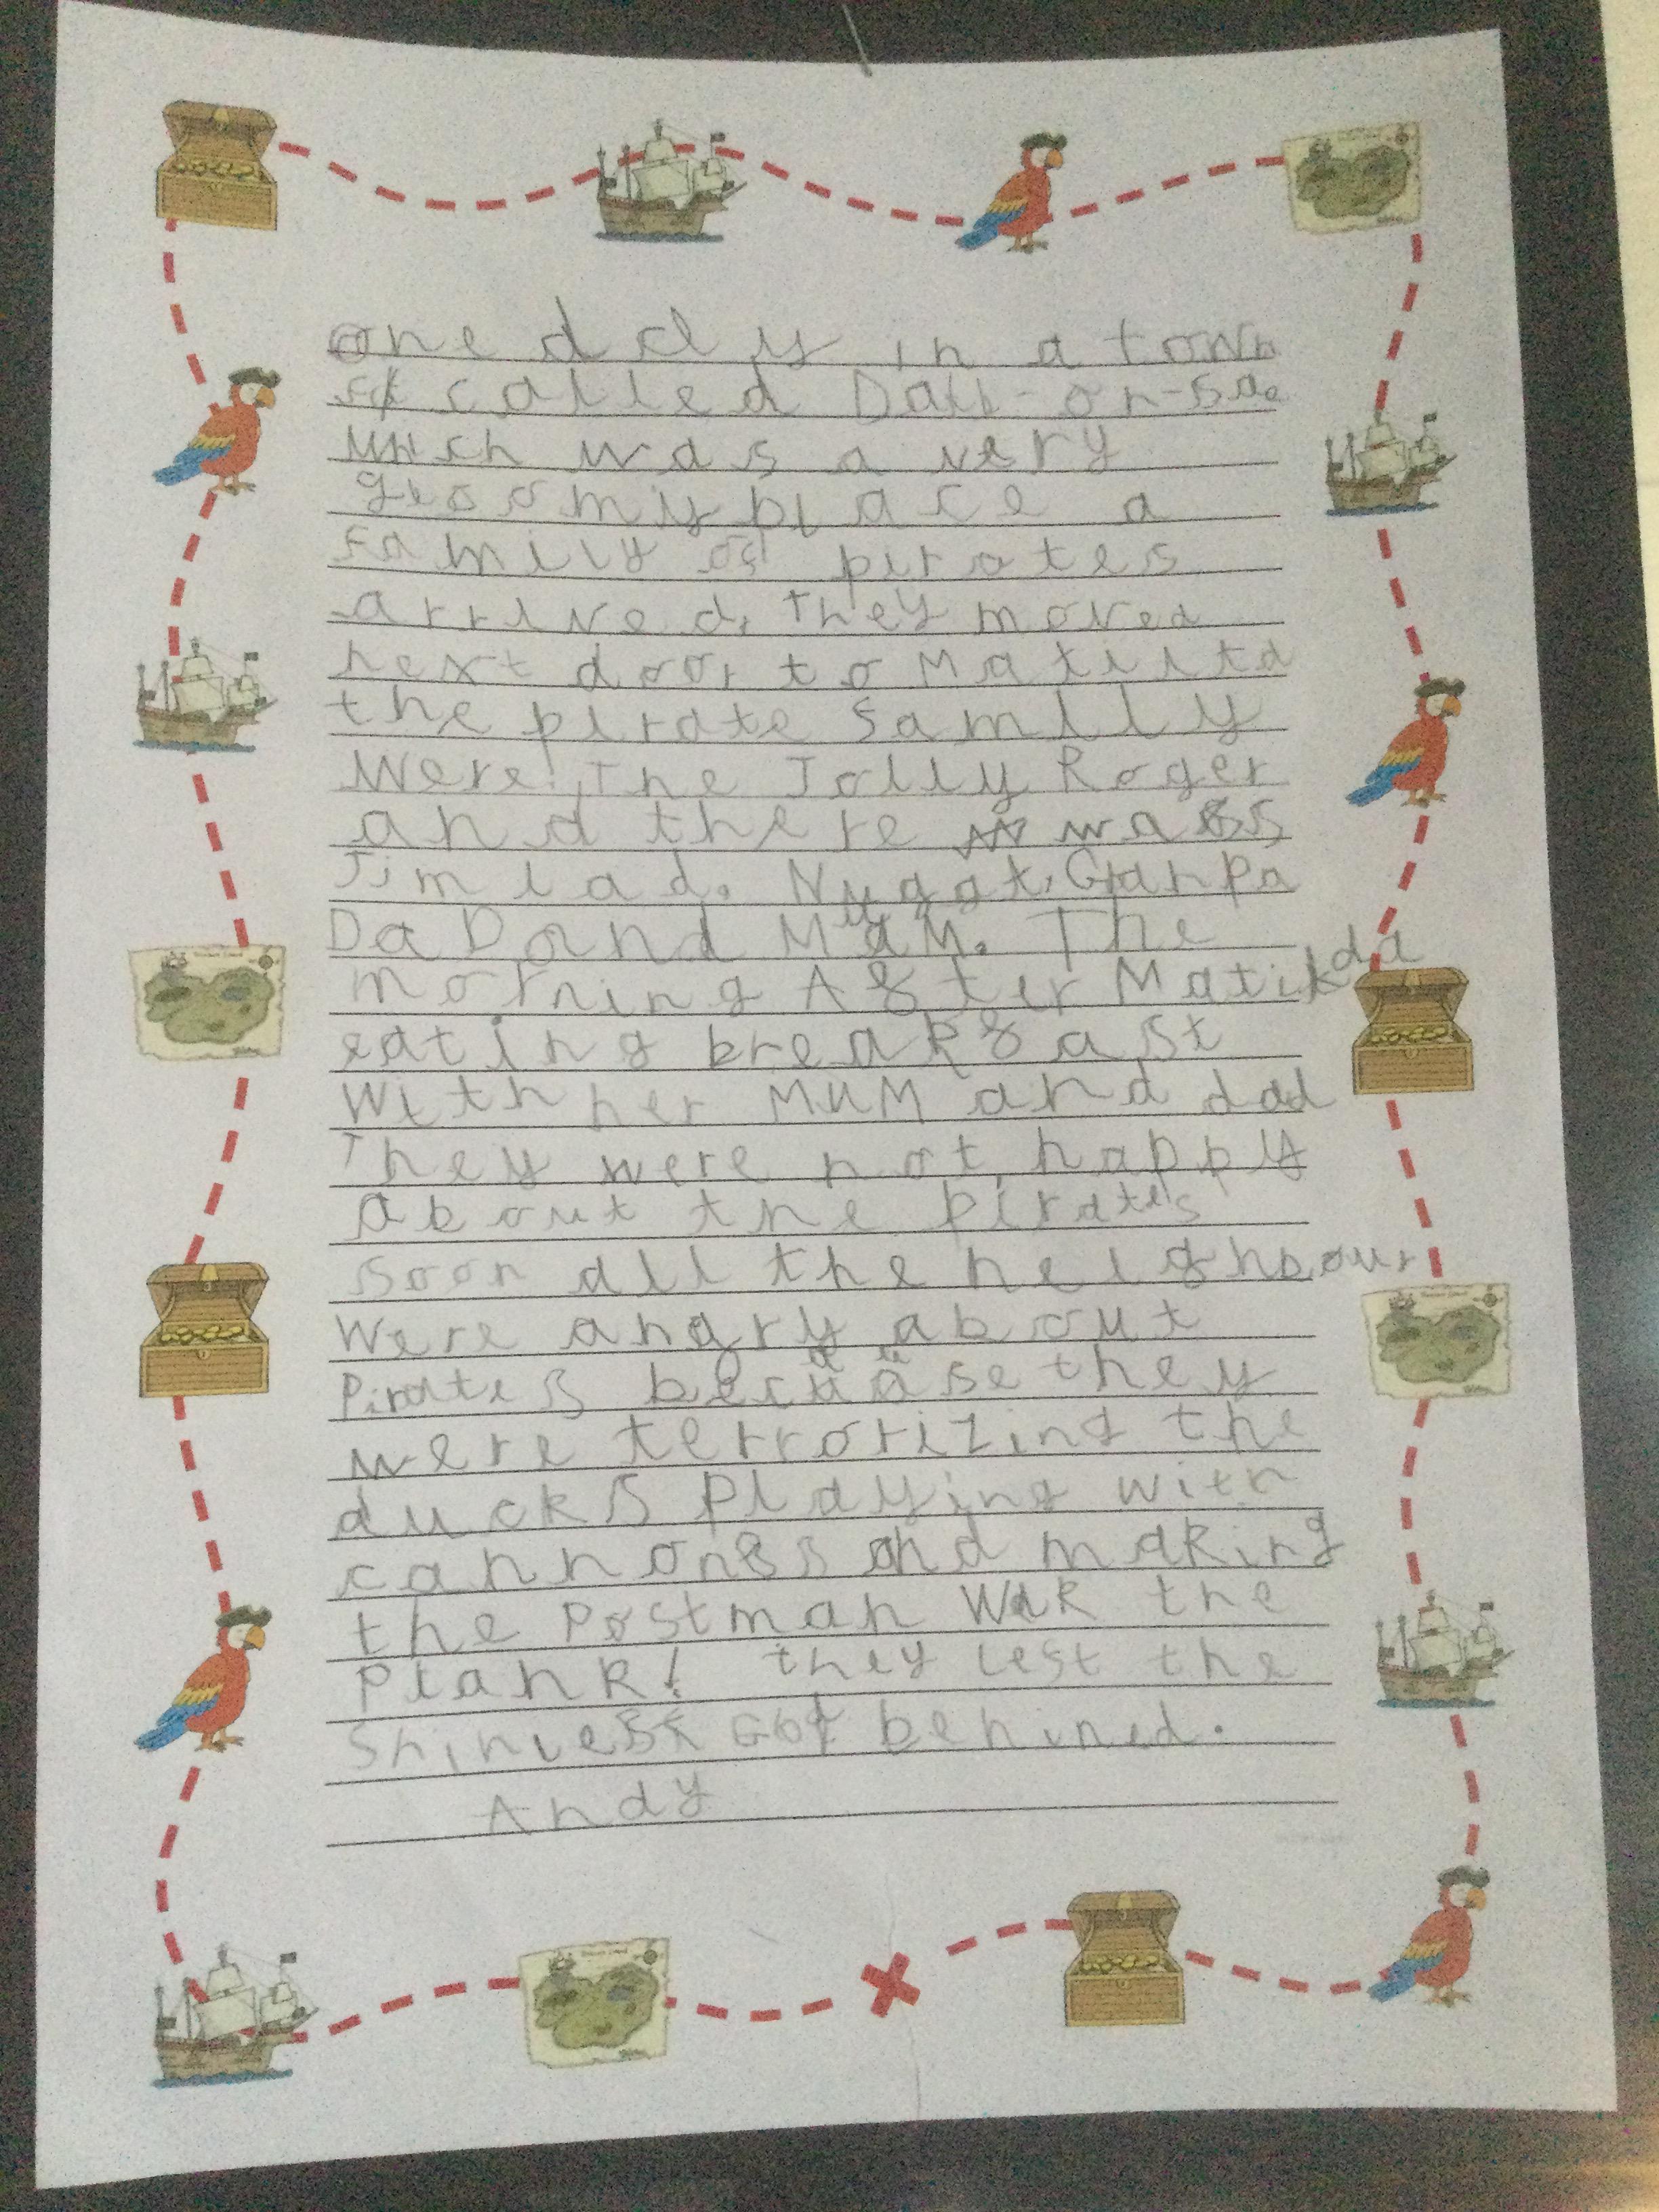 one day in a town
called Dall-on-Sae
which was a very
gloomy place a
family of pirates
arrived, they moved
next door to Matilta
the pirate family
were: The Jolly Roger
and there was
Jim lad. Nuggat, Granpa
DaD and MuM. The
morning After Matilda
eating breakfast
With her MUM and dad
They were not happy
about the pirates
Soon all the neighbour
Were angry about
Pirates because they
were terrorizing the
ducks Playing with
cannons and making
the Postman Walk the
Plank! they left the
Shiniest behined.
Andy